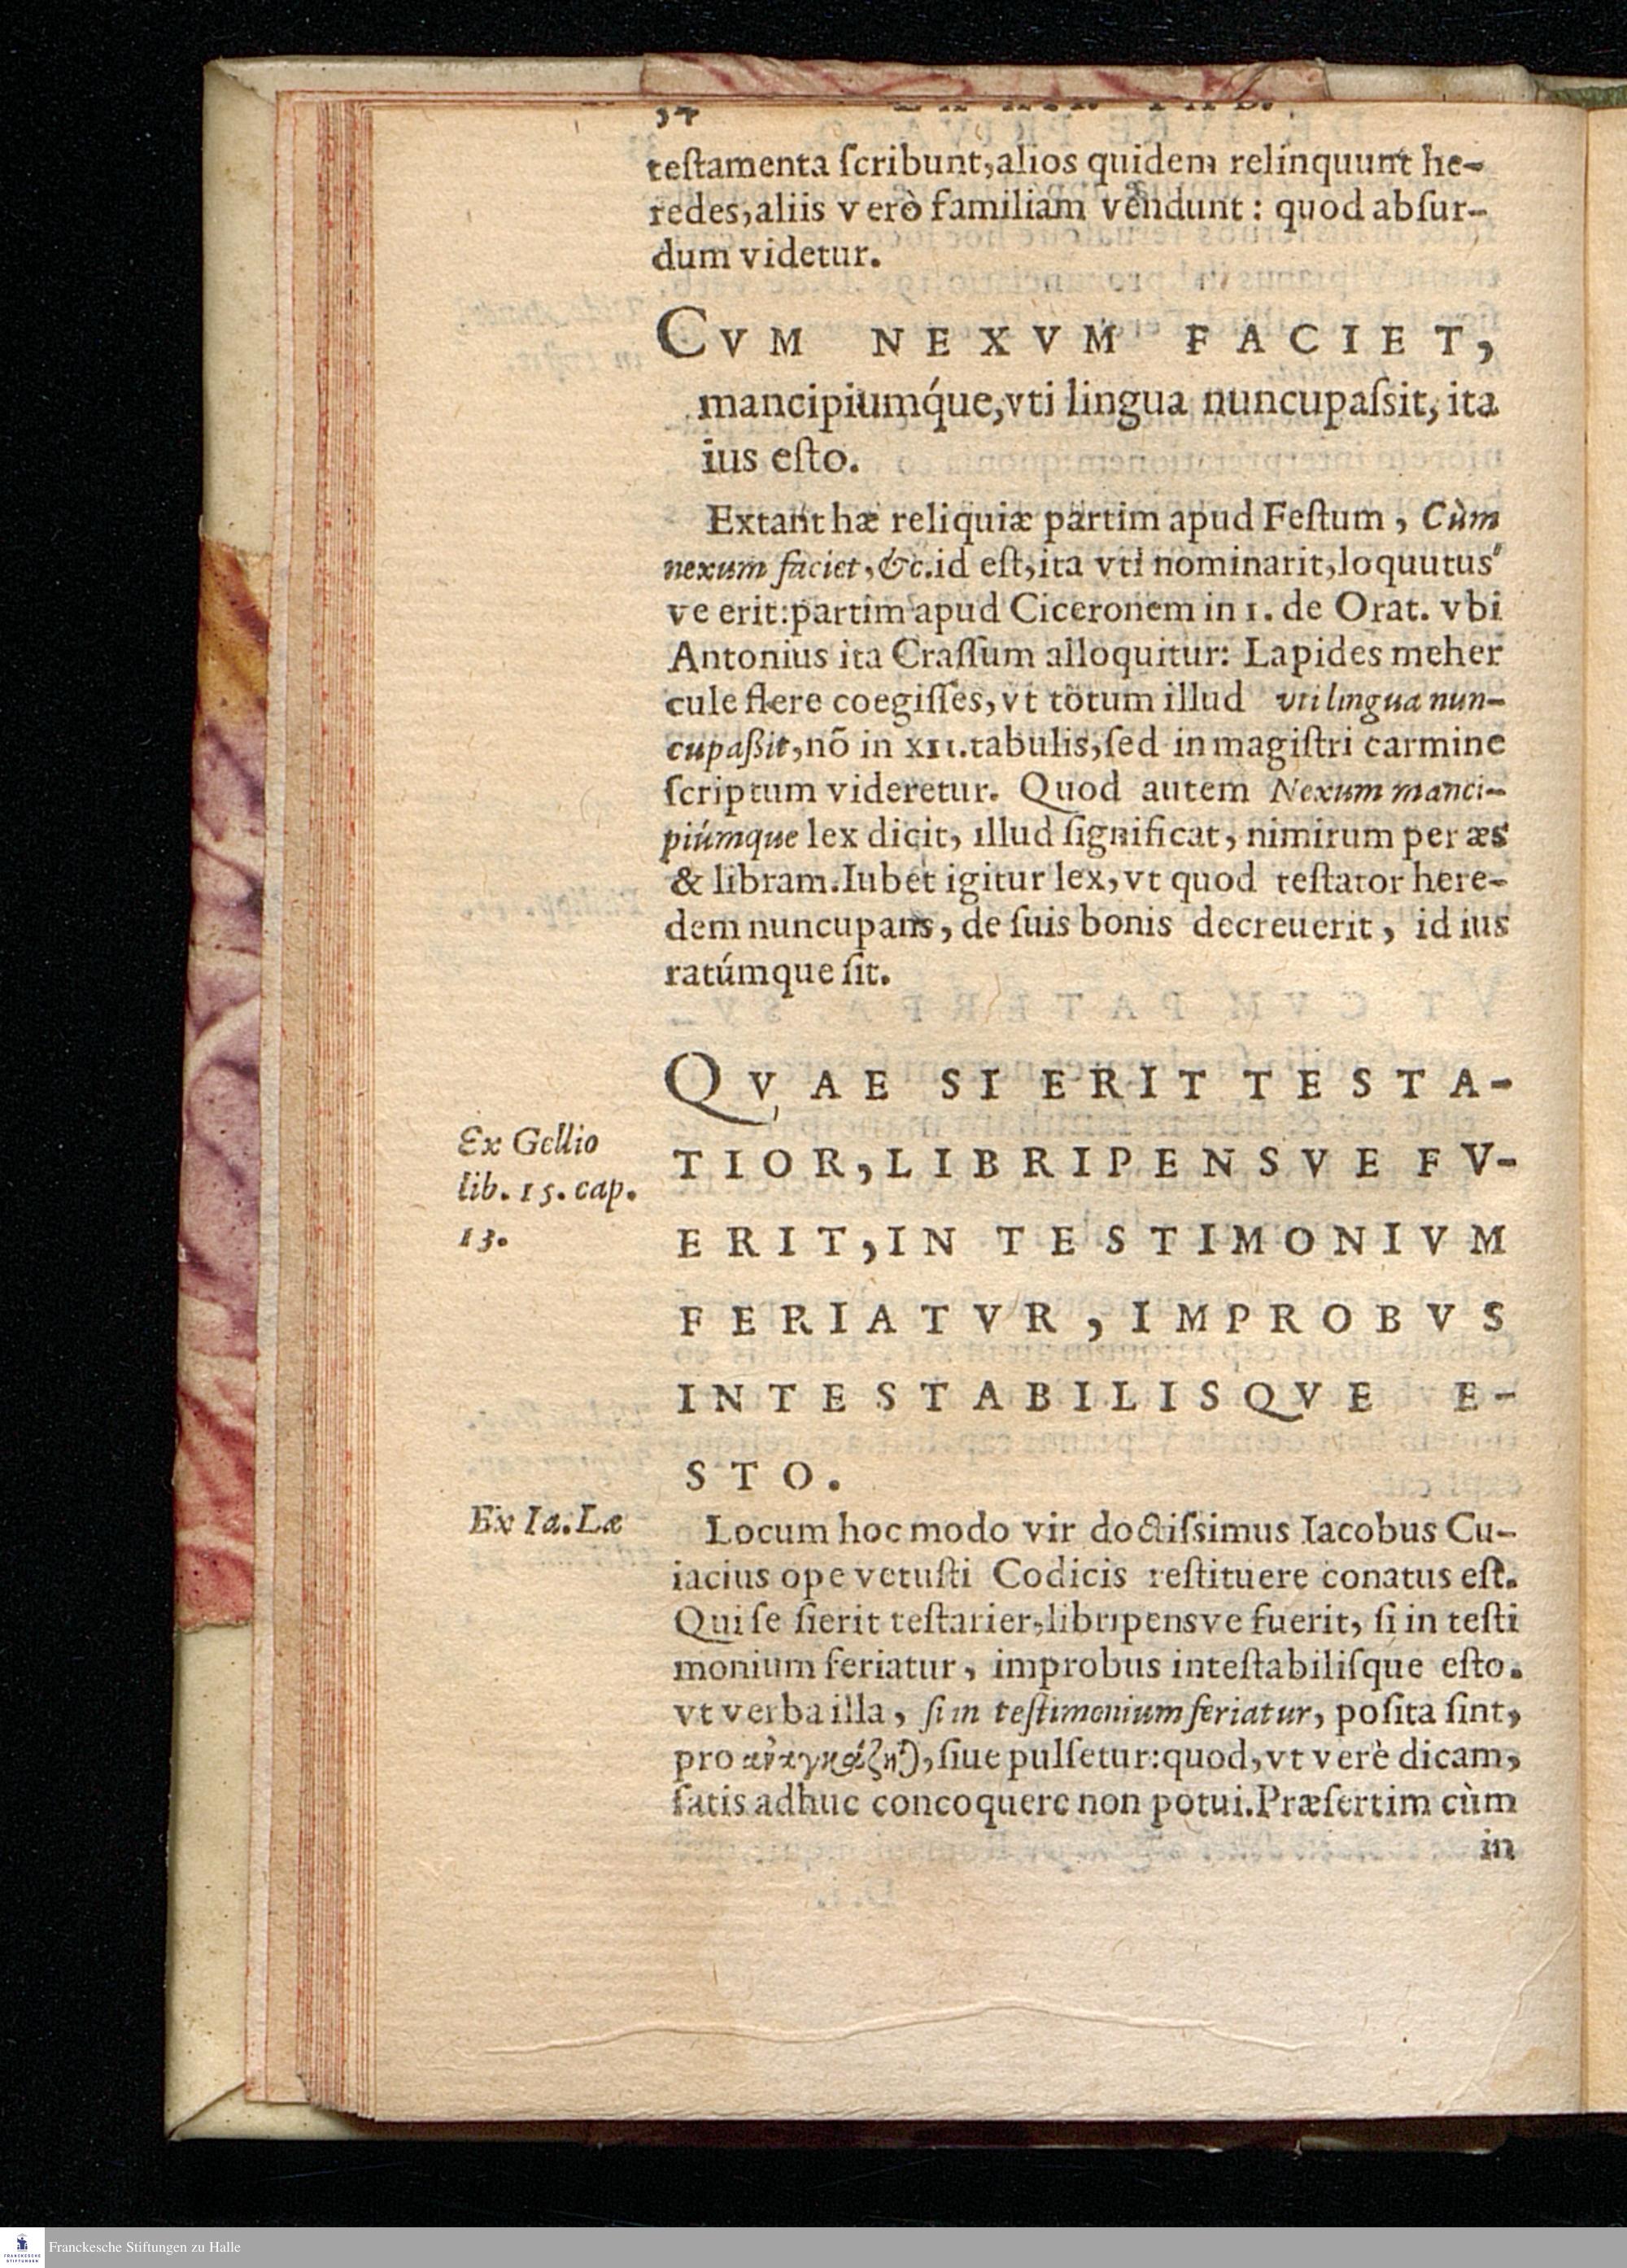 34
testamenta ſcribunt,alios quidem relinquunt he-
redes,aliis verò familiam vendunt: quod abſur-
dum videtur.
CVM NEXVM FACIET,
mancipiumq́ue,vti lingua nuncupaſsit, ita
ius eſto.
Extant hæ reliquiæ partim apud Feſtum, Cùm
nexum faciet, &c.id eſt,ita vti nominarit,loquutus'
ve erit:partim apud Ciceronem in 1. de Orat. vbi
Antonius ita Craſſum alloquitur: Lapides meher
cule flere coegiſſes,vt totum illud vti lingua nun-
cupaßit,nõ in XII.tabulis,ſed in magiſtri carmine
ſcriptum videretur. Quod autem Nexum manci-
piúmque lex dicit, illud ſignificat, nimirum per æs
& libram.Iubet igitur lex,vt quod teſtator here-
dem nuncupans, de ſuis bonis decreuerit, id ius
ratúmque ſit.
QVAE SI ERIT TESTA-
Ex Gellio
lib. 15. cap.
13.
TIOR,LIBRIPENSVE FV-
ERIT,IN TESTIMONIVM
FERIATVR, IMPROBVS
INTESTABILISQVE E-
STO.
Ex Ia.Læ
Locum hoc modo vir doctiſsimus Iacobus Cu-
iacius ope vetuſti Codicis reſtituere conatus eſt.
Qui ſe ſierit teſtarier,libripensve fuerit, ſi in teſti
monium feriatur, improbus inteſtabiliſque eſto.
vt verba illa, ſi in teſtimonium feriatur, poſita ſint,
pro ,ſiue pulſetur:quod,vt verè dicam,
ſatis adhuc concoquere non potui.Præſertim cùm
in
Franckesche Stiftungen zu Halle